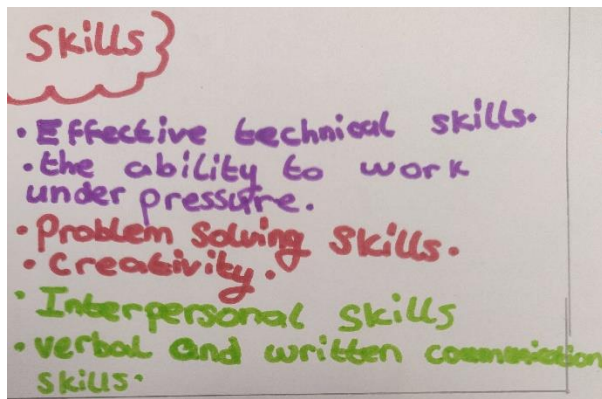 Skills
• Effective technical skills.
• the ability to work
under pressure.
• Problem Solving Skills.
• Creativity.
• Interpersonal Skills
• verbal and written communication
skills.